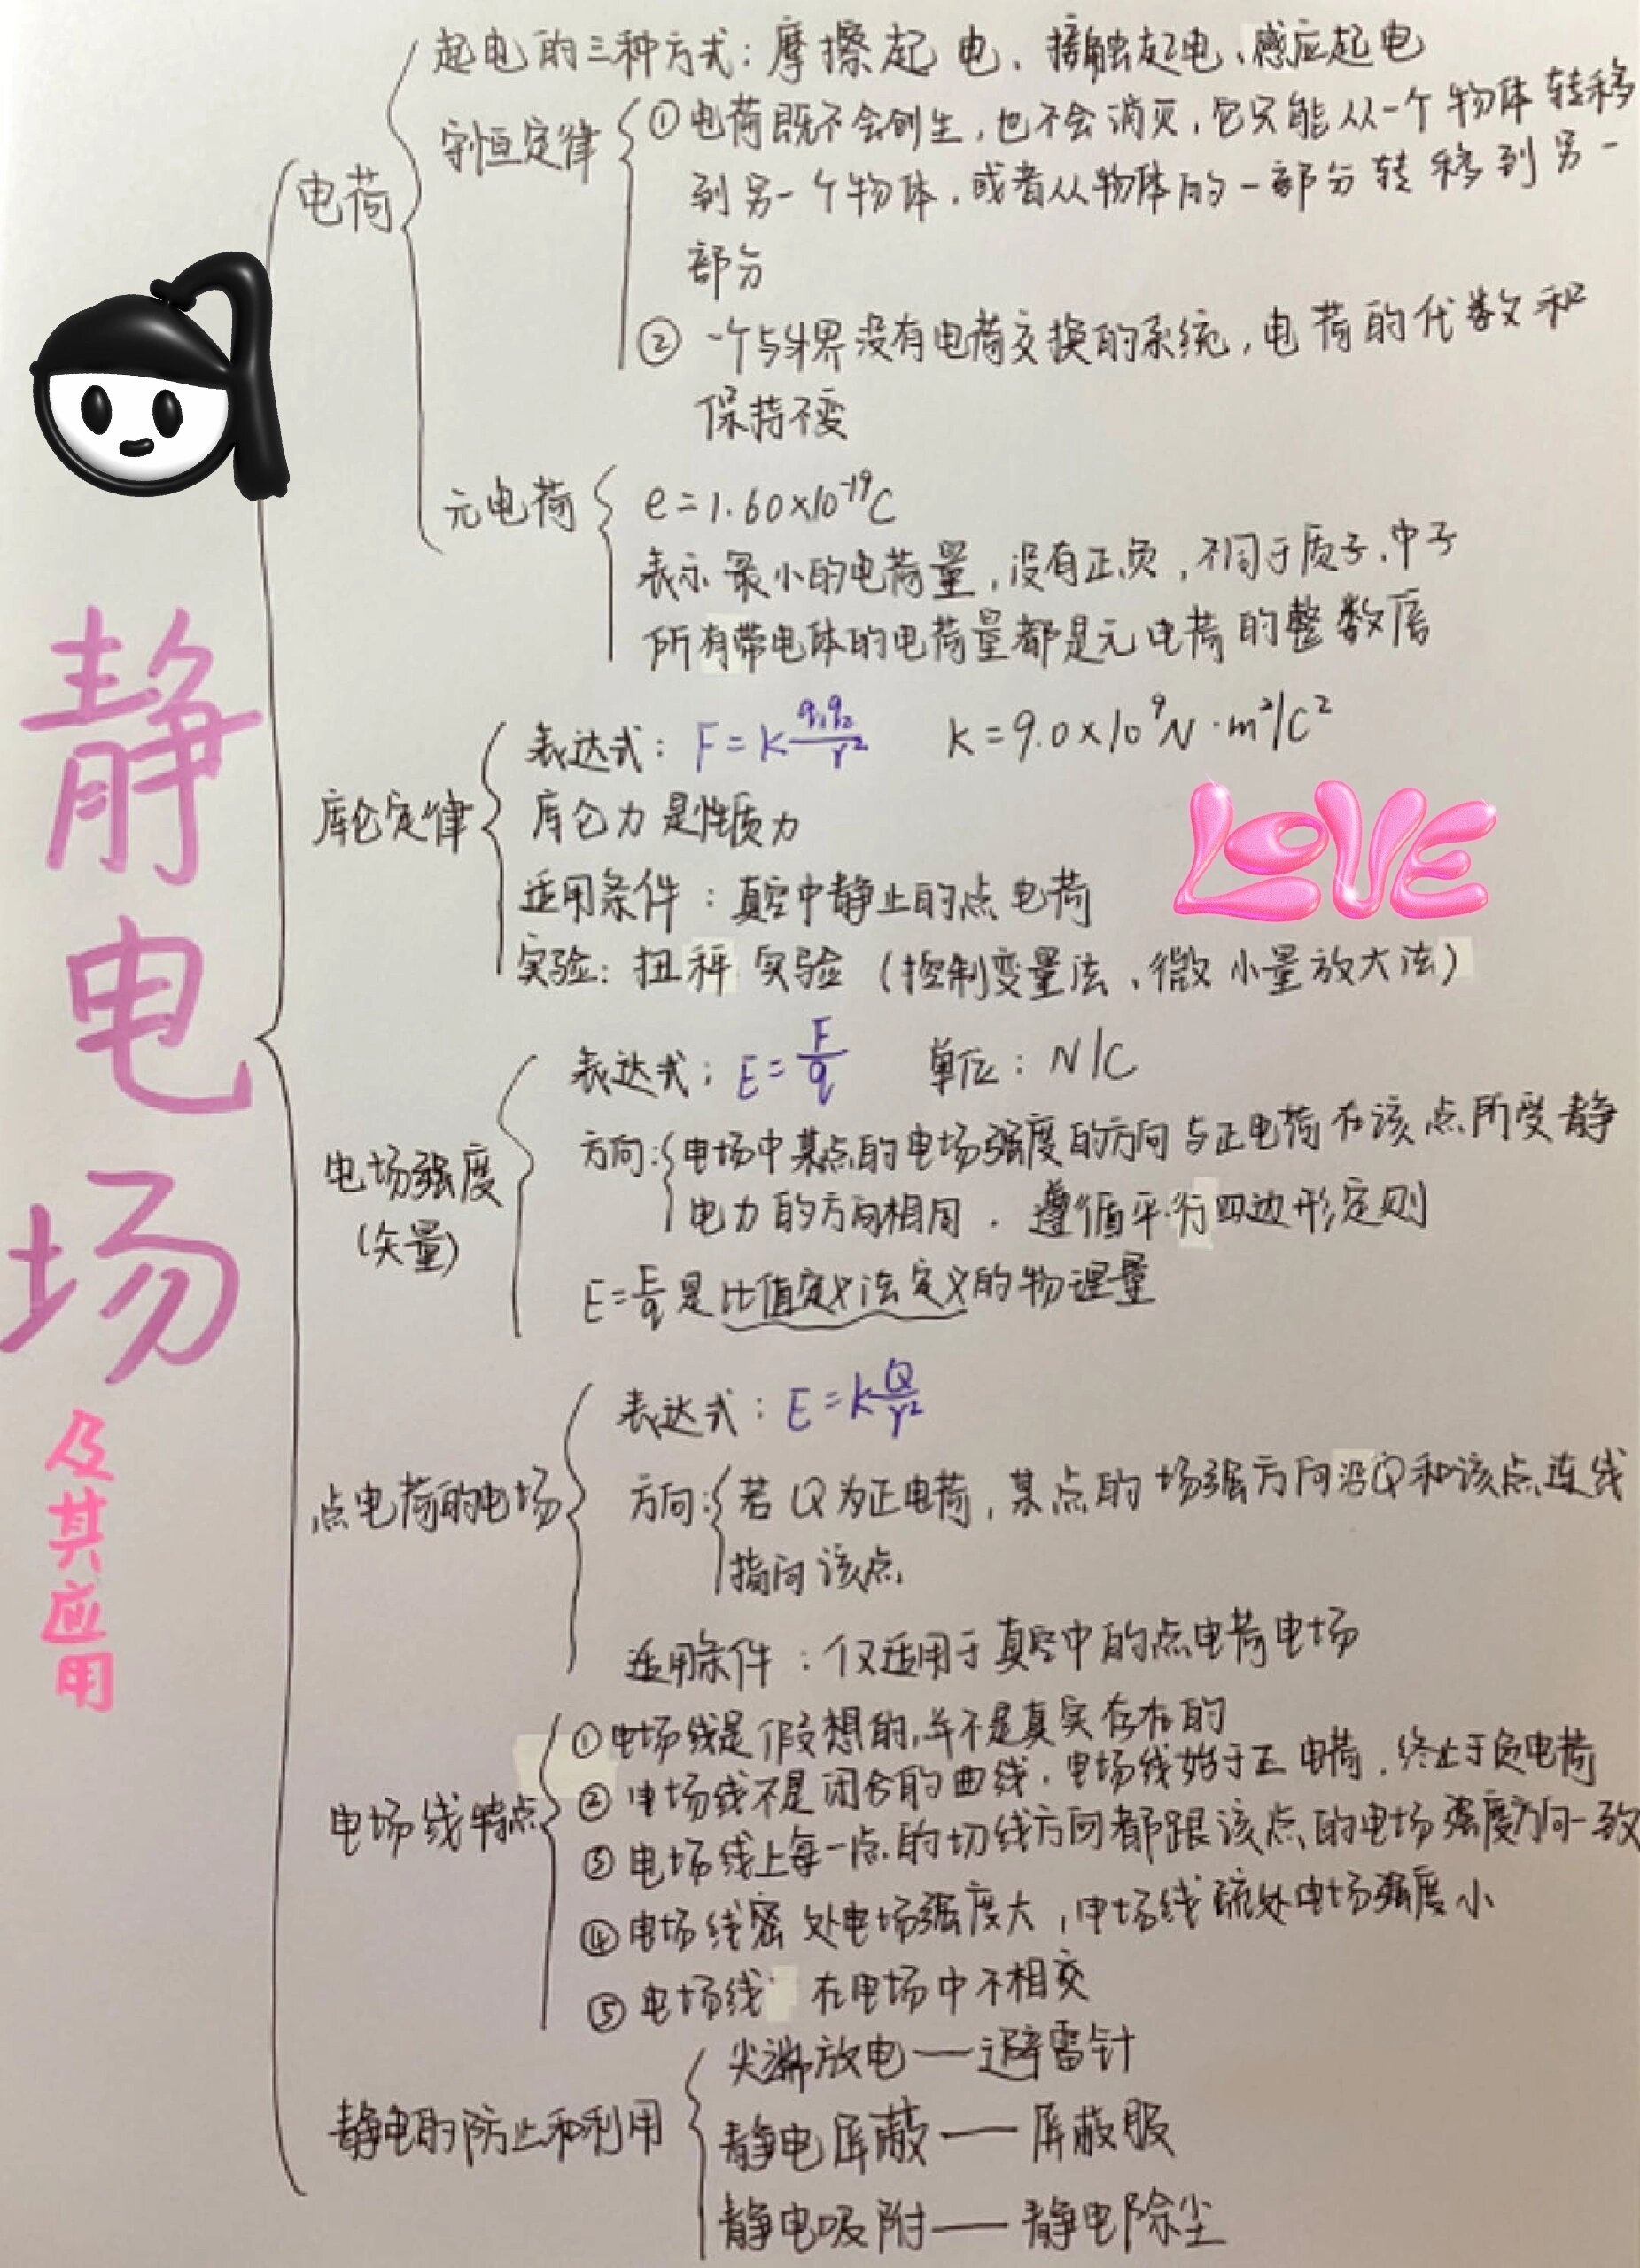 静电场
及其应用
电荷
起电的三种方式：摩擦起电、接触起电、感应起电
守恒定律
①电荷既不会创生，也不会消灭，它只能从一个物体转移
到另一个物体，或者从物体的一部分转移到另一
部分
②一个与外界没有电荷交换的系统，电荷的代数和
保持不变
元电荷
e=1.60×10⁻¹⁹C
表示最小的电荷量，没有正负，不同于质子、中子
所有带电体的电荷量都是元电荷的整数倍
库仑定律
表达式：F=k q₁q₂/r² k=9.0×10⁹N·m²/C²
库仑力是性质力
适用条件：真空中静止的点电荷
实验：扭秤实验（控制变量法、微小量放大法）
LOVE
电场强度
(矢量)
表达式：E=F/q 单位：N/C
方向：电场中某点的电场强度的方向与正电荷在该点所受静
电力的方向相同．遵循平行四边形定则
E=F/q是比值定义法定义的物理量
点电荷的电场
表达式：E=kQ/r²
方向：若Q为正电荷，某点的场强方向沿Q和该点连线
指向该点
适用条件：仅适用于真空中的点电荷电场
电场线特点
①电场线是假想的，并不是真实存在的
②电场线不是闭合的曲线，电场线始于正电荷，终止于负电荷
③电场线上每一点的切线方向都跟该点的电场强度方向一致
④电场线密处电场强度大，电场线疏处电场强度小
⑤电场线在电场中不相交
静电的防止和利用
尖端放电——避雷针
静电屏蔽——屏蔽服
静电吸附——静电除尘